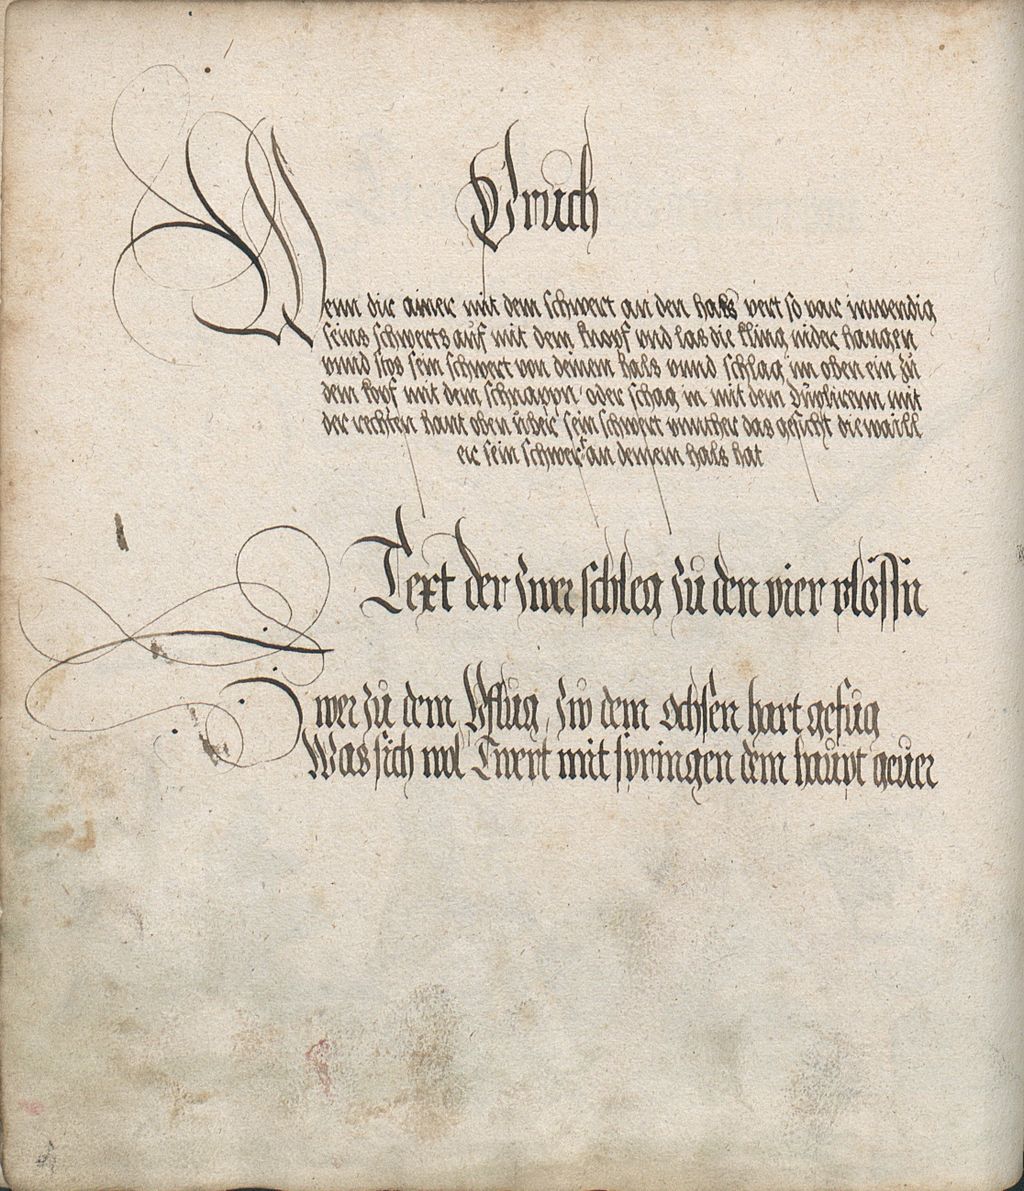 Pruch
Wenn dir ainer mit dem schwert an den hals vert so var inwendig
seins schwerts auf mit dem knopf vnd las die kling nider hangen
vnnd stos sein schwert von deinem hals vnnd schlag im oben ein zü
dem kopf mit dem schnappn oder schag in mit dem düplirenn mit
der rechten hant oben über sein schwert das gesicht die waill
er sein schwert an deinem hals hat
Text der zwer schleg zü den vier plössn
Zwer zü dem Pflüg zw dem ochsen hart gefüg
Was sich wol Twert mit springen dem haüpt geuer